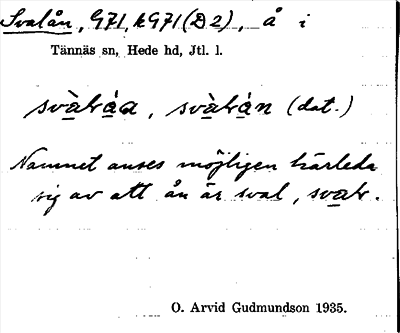 Svalån, G71, kG71 (D2), å i
Tännäs sn, Hede hd, Jtl. l.
(dat.)
Namnet anses möjligen härleda
sig av att ån är sval,
O. Arvid Gudmundson 1935.